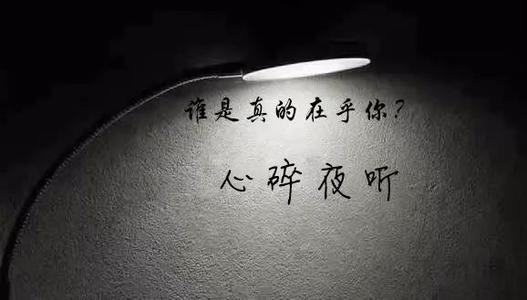 谁是真的在乎你？
心碎夜听